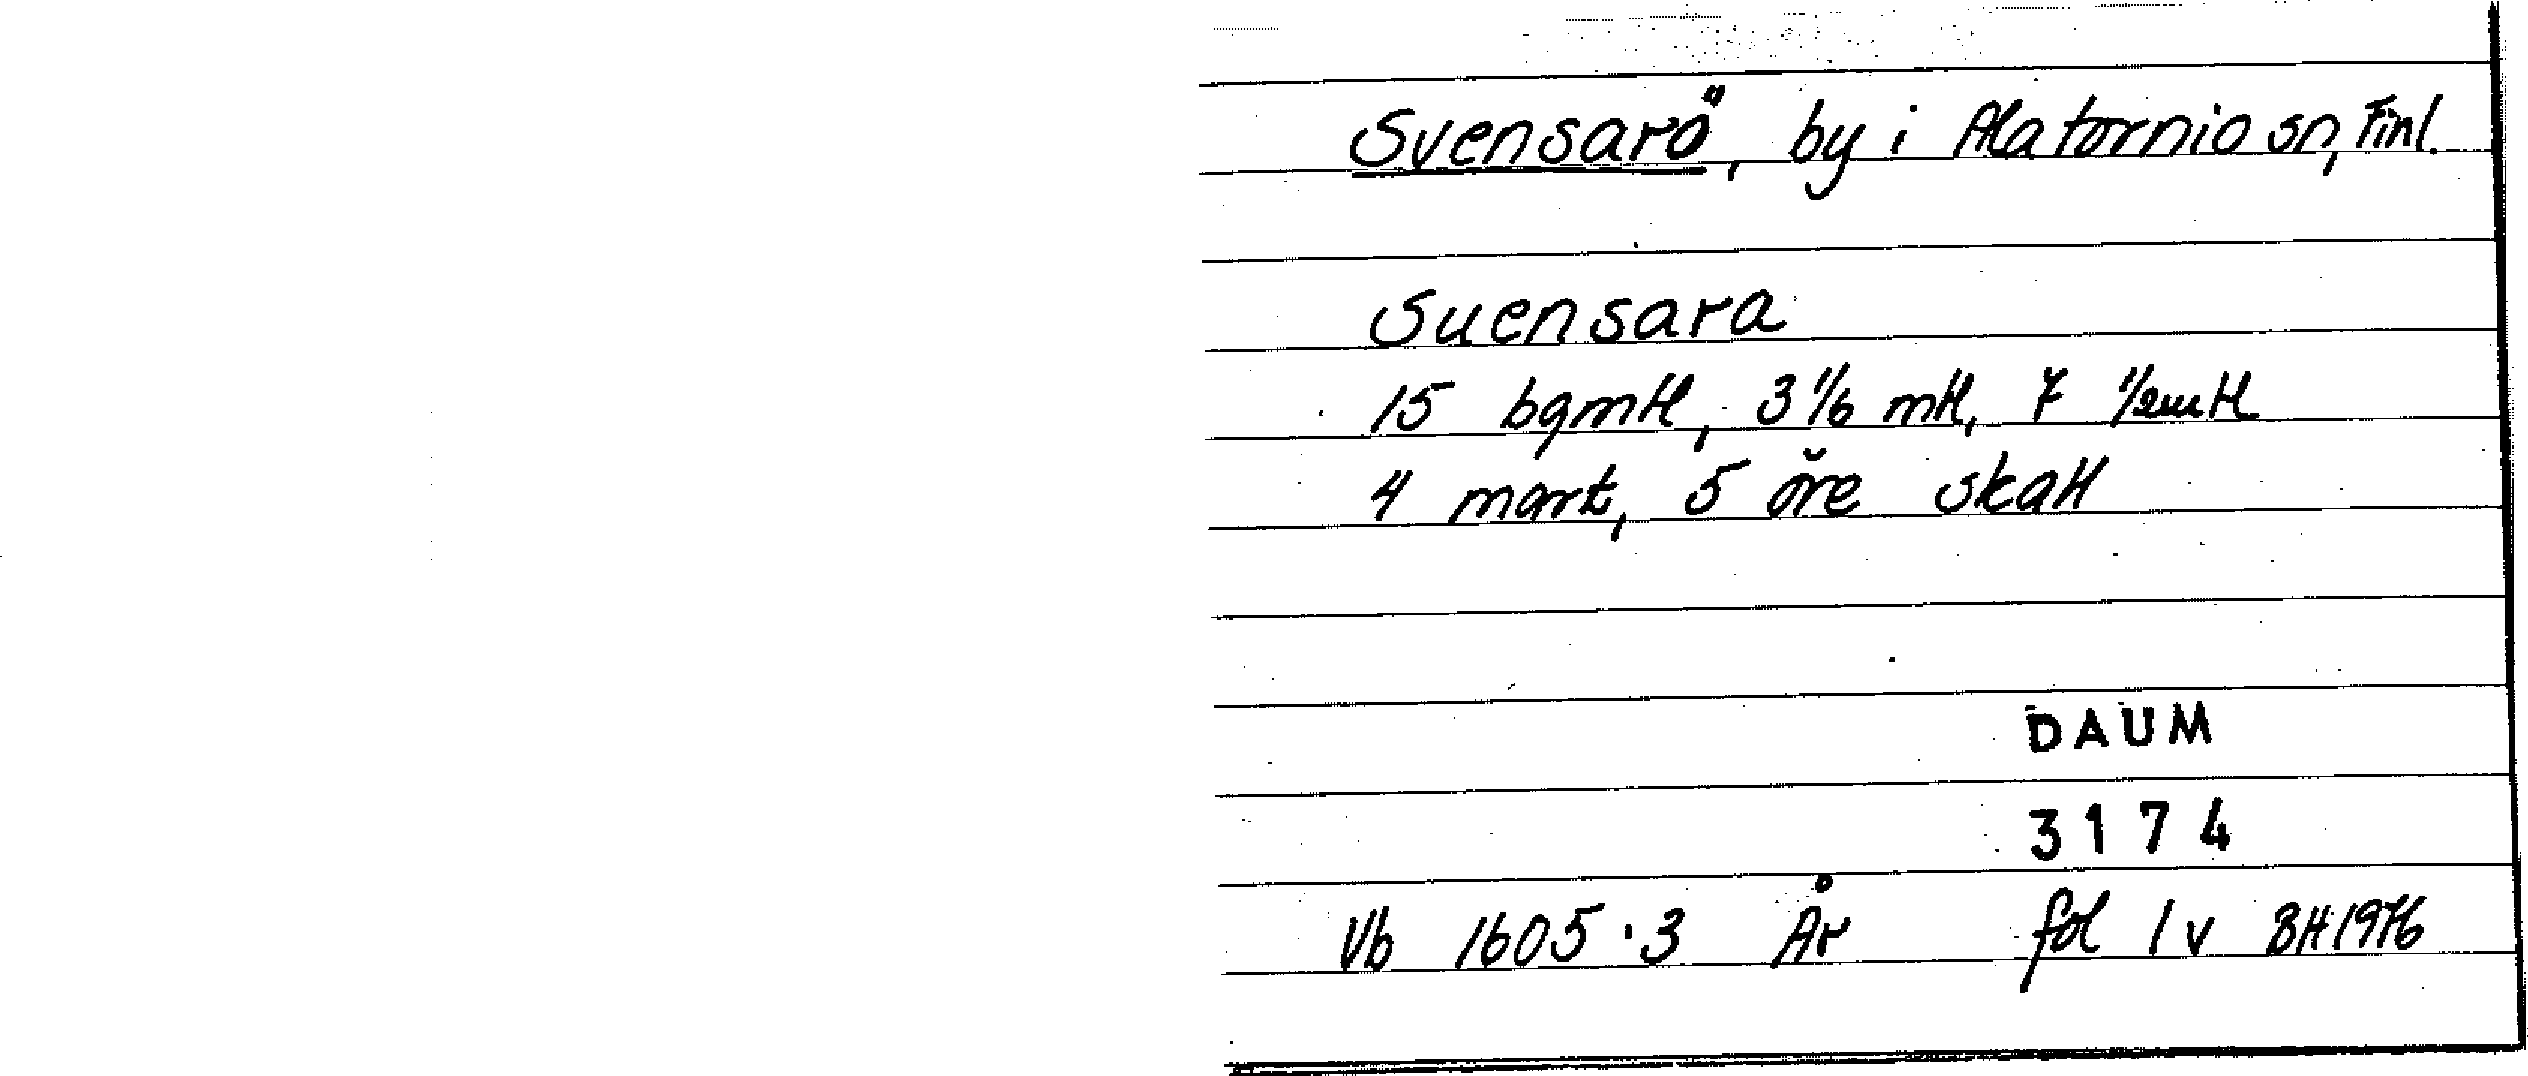 Svensarö, by i Alatornio sn, Finl.
Suensara
15 bgmtl, 3 1/6 mtl, 7 1/2mtl
4 mark, 5 öre skatt
DAUM
3174
Vb 1605:3 År fol 1 v BH 1976